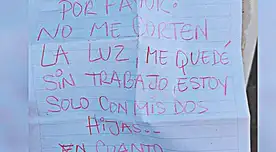 POR FAVOR.
NO ME CORTEN
LA LUZ, ME QUEDÉ
SIN TRABAJO, ESTOY
SOLO CON MIS DOS
HIJAS...
EN CUANTO